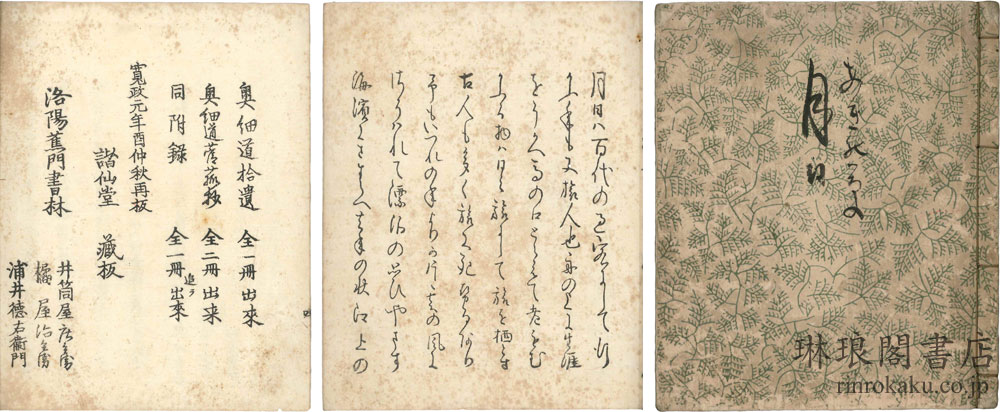 月
月日ハ百代の過客にして行
かふ年も又旅人也舟の上に生涯
をうかへ馬の口とらえて老をむ
かふる物ハ日々旅にして旅を栖とす
古人も多く旅に死せるあり
予もいつれの年よりか片雲の風に
さそはれて漂泊の思ひやます
海濱にさすらへ去年の秋江上の
奥細道拾遺 全一冊出来
奥細道菅菰抄 全二冊出来
同附録 全一冊追ヲ出來
寛政元年酉仲秋再板
諧仙堂 藏板
洛陽蕉門書林
井筒屋庄兵衛
橘屋治兵衛
浦井徳右衛門
琳琅閣書店
rinrokaku.co.jp